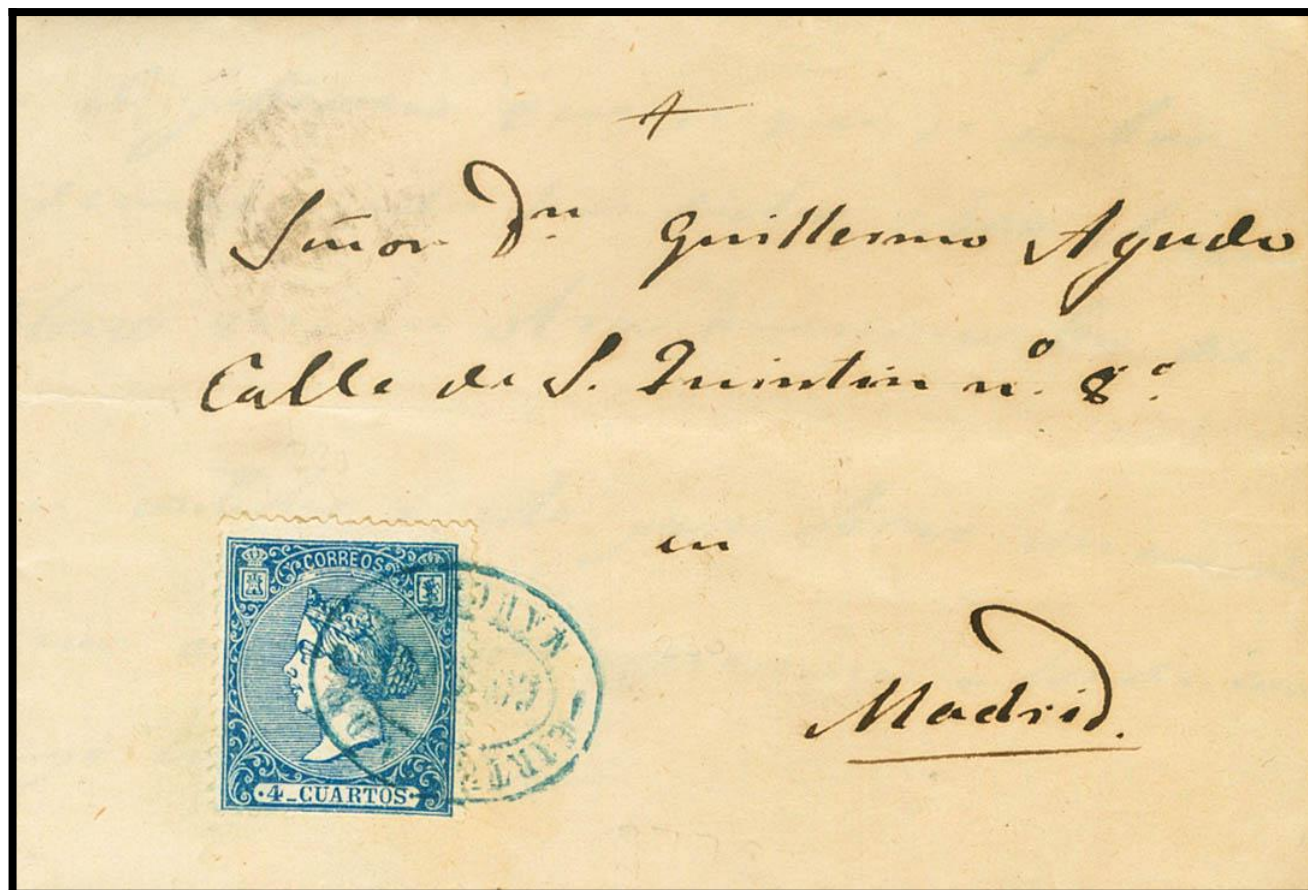 Señor Dn Guillermo Agudo
Calle de S. Quintin nº. 8º.
en
Madrid.
CORREOS
4_CUARTOS